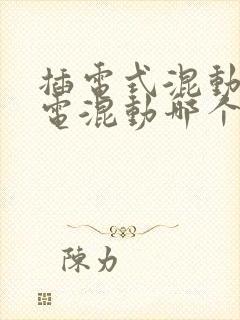 插電式混動
電混動哪个
陳力